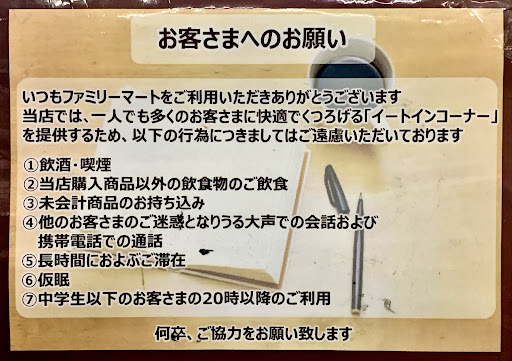 お客さまへのお願い
いつもファミリーマートをご利用いただきありがとうございます
当店では、一人でも多くのお客さまに快適でくつろげる「イートインコーナー」
を提供するため、以下の行為につきましてはご遠慮いただいております
①飲酒・喫煙
②当店購入商品以外の飲食物のご飲食
③未会計商品のお持ち込み
④他のお客さまのご迷惑となりうる大声での会話および
携帯電話での通話
⑤長時間におよぶご滞在
⑥仮眠
⑦中学生以下のお客さまの20時以降のご利用
何卒、ご協力をお願い致します